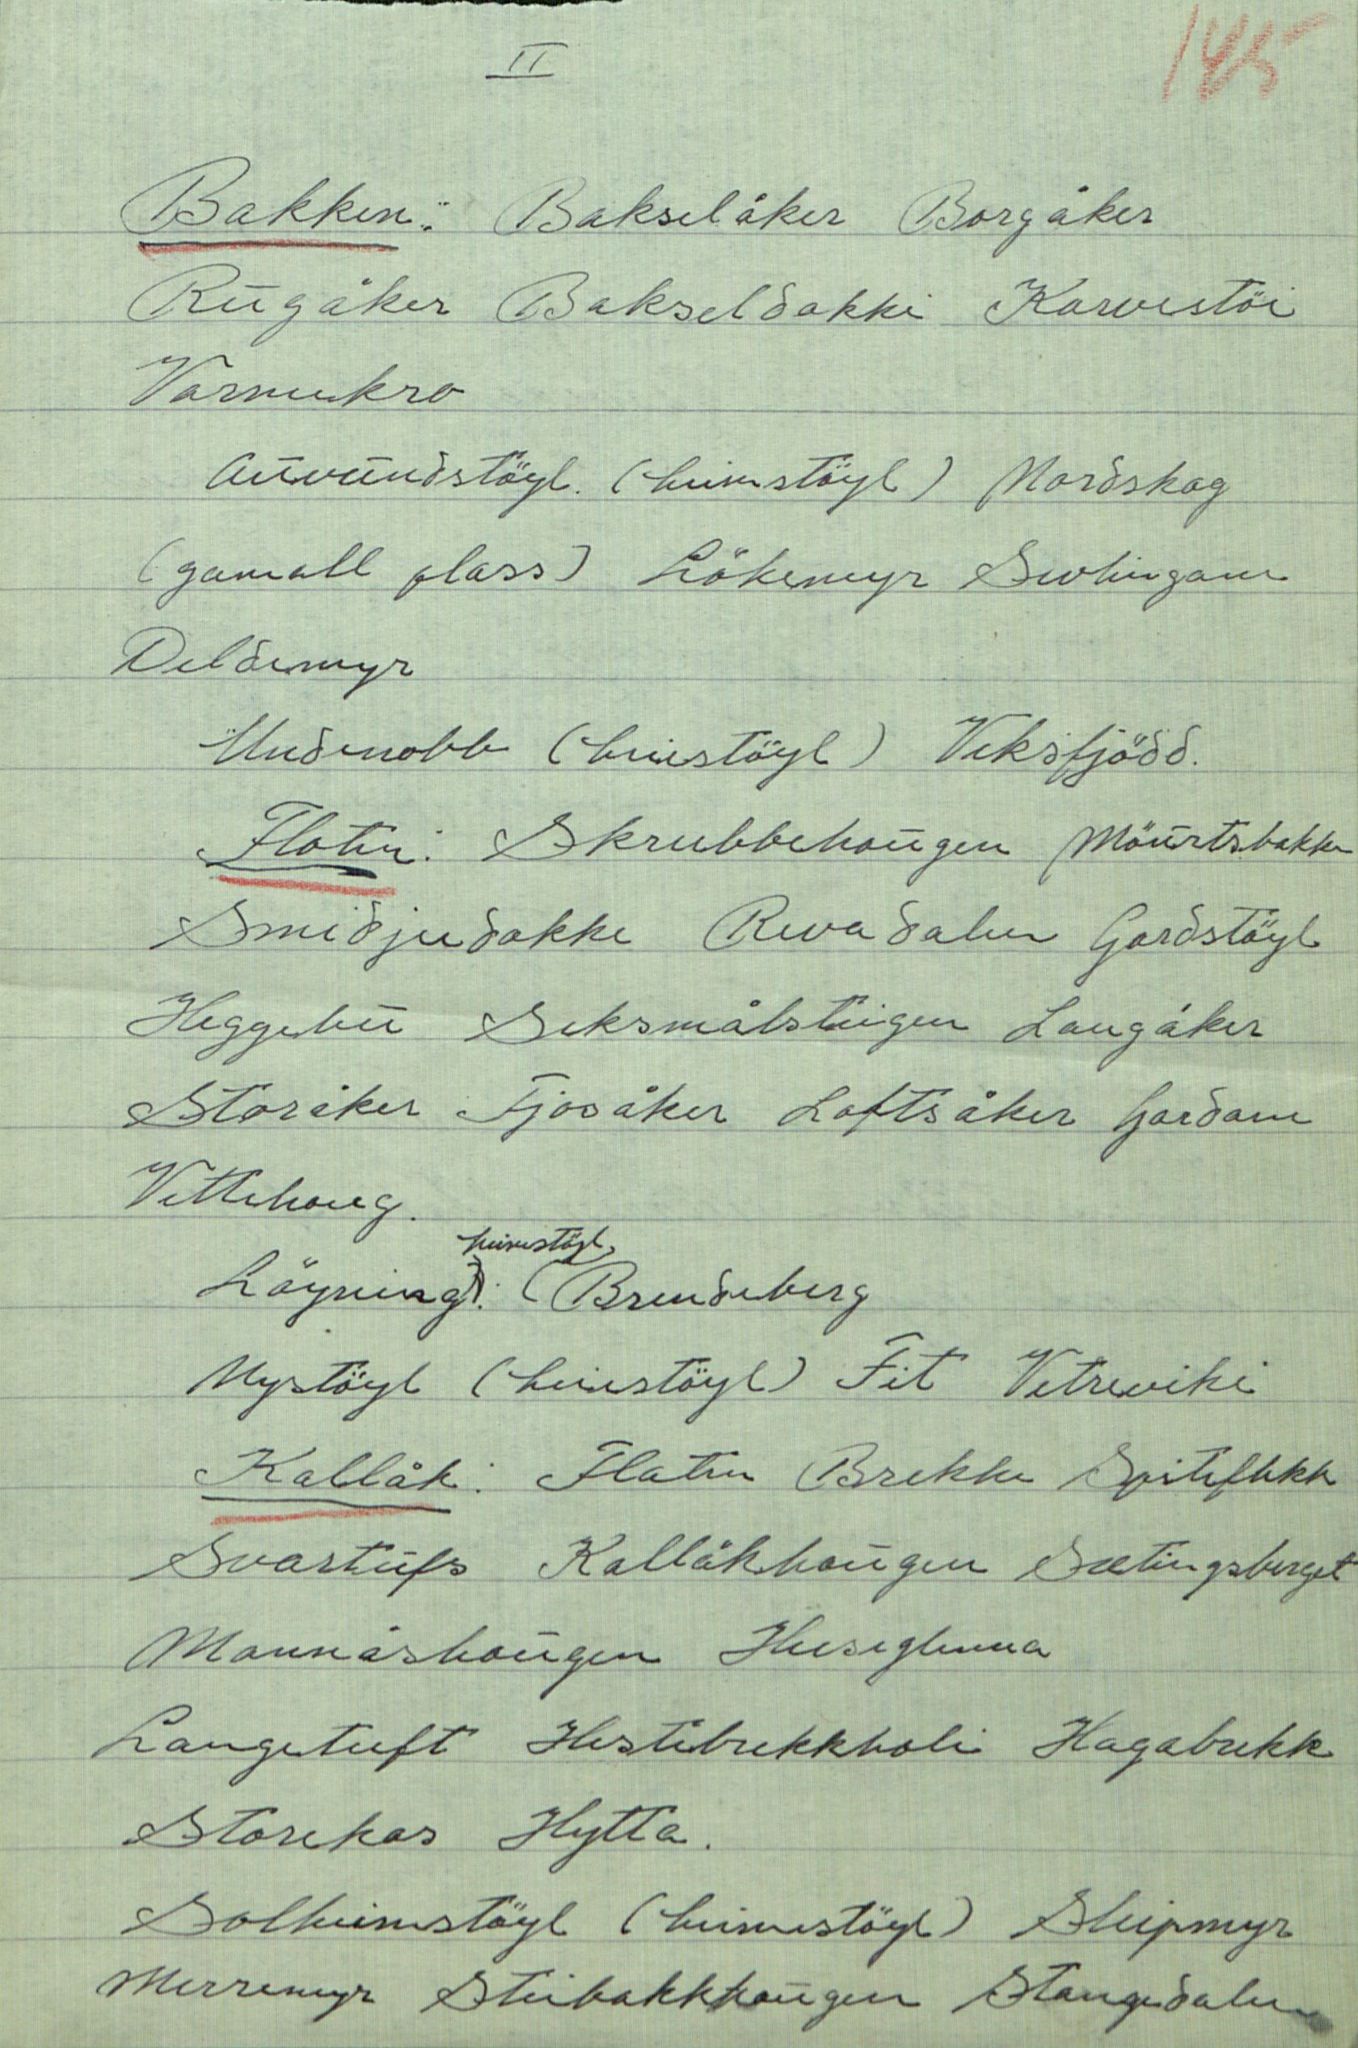 II
145
Bakken: Bakselåker Borgåker
Rugåker Bakseldokki Karvestöi
Varmekro
Auvundstöyl. (heimstöyl) Nordskog
(gamall plass) Lökemyr
Deldemyr
(heimestöyl) Veksfjödd.
Flatin: Skrubbehaugen Möurtsbakke
Smidjudokke Revadalen Gardstöyl
Heggebu Seksmålsteigen Langåker
Storåker Fjosåker Loftsåker Gardane
Vettehaug.
heimstöyl
Löyning): (Brendeberg
Nystöyl (heimstöyl) Fit Vetreviki
Kallåk: Flatin Brekke Spiteflekk
Svartufs Kallåkhaugen Sætingsberget
Mannåshaugen Huseglenna
Langetuft Hestebrekkholi Hagabrekk
Storekas Hytta.
Solheimstöyl (heimestöyl) Sleipmyr
Merremyr Steibakkhaugen Stangedalen